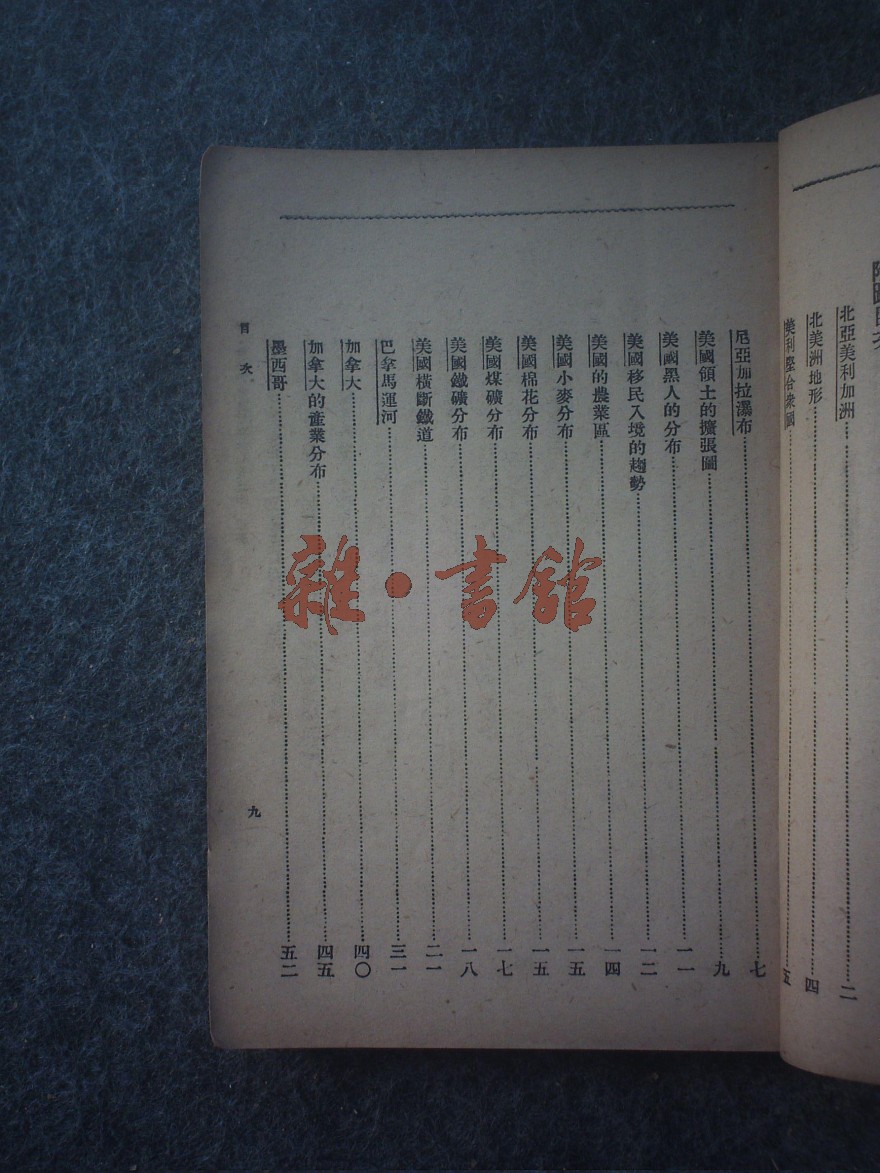 附圖目次
北亞美利加洲……二
北美洲地形……四
美利堅合衆國……五
尼亞加拉瀑布……七
美國領土的擴張圖……九
美國黑人的分布……一一
美國移民入境的趨勢……一二
美國的農業區……一四
美國小麥分布……一五
美國棉花分布……一五
美國煤礦分布……一七
美國鐵礦分布……一八
美國橫斷鐵道……二一
巴拿馬運河……三一
加拿大……四〇
加拿大的產業分布……四五
墨西哥……五二
目次
九
雜·書館